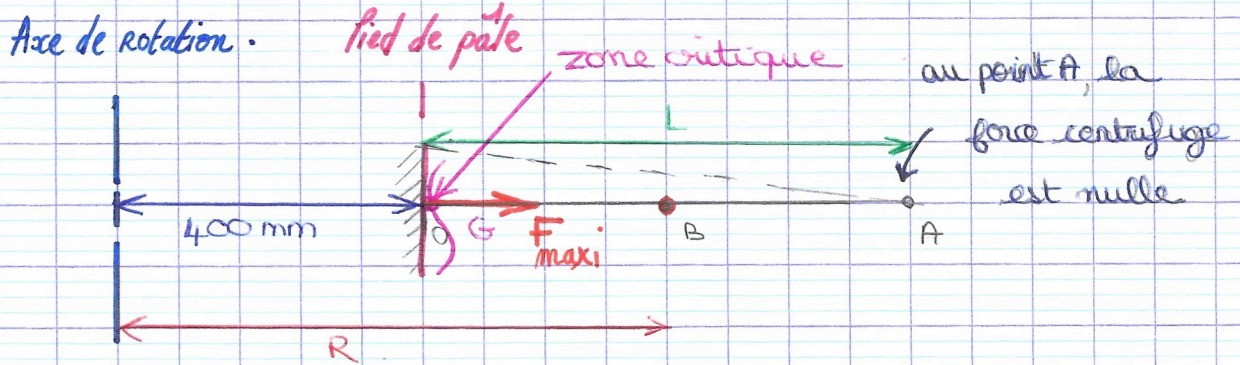 Axe de Rotation.
Pied de pâle
zone critique
au point A, la
force centrifuge
est nulle
L
400 mm
O
G
F maxi
B
A
R